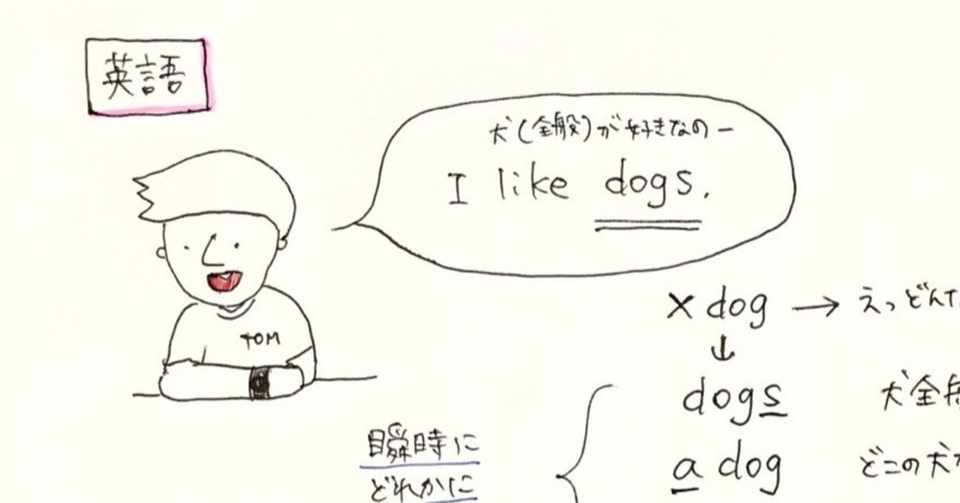 英語
犬(全般)が好きなのー
I like dogs.
TOM
×dog → えっどんな
↓
dogs 犬全般
a dog どこの犬か
瞬時に
どれかに